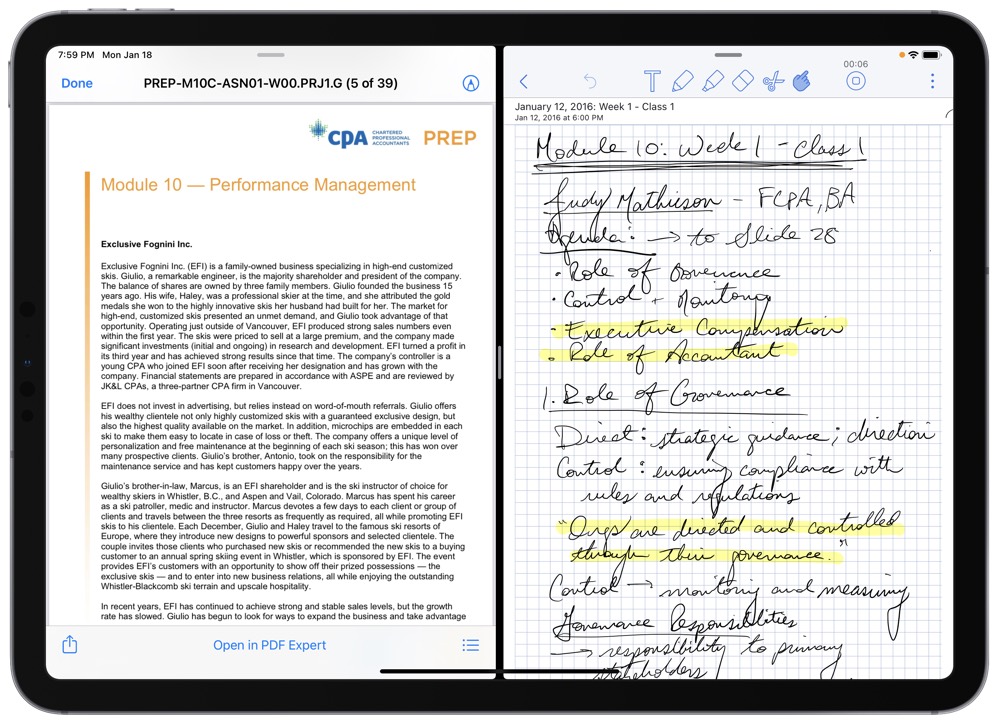 7:59 PM Mon Jan 18
Done
PREP-M10C-ASN01-W00.PRJ1.G (5 of 39)
CPA CHARTERED PROFESSIONAL ACCOUNTANTS PREP
Module 10 — Performance Management
Exclusive Fognini Inc.
Exclusive Fognini Inc. (EFI) is a family-owned business specializing in high-end customized
skis. Giulio, a remarkable engineer, is the majority shareholder and president of the company.
The balance of shares are owned by three family members. Giulio founded the business 15
years ago. His wife, Haley, was a professional skier at the time, and she attributed the gold
medals she won to the highly innovative skis her husband had built for her. The market for
high-end, customized skis presented an unmet demand, and Giulio took advantage of that
opportunity. Operating just outside of Vancouver, EFI produced strong sales numbers even
within the first year. The skis were priced to sell at a large premium, and the company made
significant investments (initial and ongoing) in research and development. EFI turned a profit in
its third year and has achieved strong results since that time. The company's controller is a
young CPA who joined EFI soon after receiving her designation and has grown with the
company. Financial statements are prepared in accordance with ASPE and are reviewed by
JK&L CPAs, a three-partner CPA firm in Vancouver.
EFI does not invest in advertising, but relies instead on word-of-mouth referrals. Giulio offers
his wealthy clientele not only highly customized skis with a guaranteed exclusive design, but
also the highest quality available on the market. In addition, microchips are embedded in each
ski to make them easy to locate in case of loss or theft. The company offers a unique level of
personalization and free maintenance at the beginning of each ski season; this has won over
many prospective clients. Giulio's brother, Antonio, took on the responsibility for the
maintenance service and has kept customers happy over the years.
Giulio's brother-in-law, Marcus, is an EFI shareholder and is the ski instructor of choice for
wealthy skiers in Whistler, B.C., and Aspen and Vail, Colorado. Marcus has spent his career
as a ski patroller, medic and instructor. Marcus devotes a few days to each client or group of
clients and travels between the three resorts as frequently as required, all while promoting EFI
skis to his clientele. Each December, Giulio and Haley travel to the famous ski resorts of
Europe, where they introduce new designs to powerful sponsors and selected clientele. The
couple invites those clients who purchased new skis or recommended the new skis to a buying
customer to an annual spring skiing event in Whistler, which is sponsored by EFI. The event
provides EFI's customers with an opportunity to show off their prized possessions — the
exclusive skis — and to enter into new business relations, all while enjoying the outstanding
Whistler-Blackcomb ski terrain and upscale hospitality.
In recent years, EFI has continued to achieve strong and stable sales levels, but the growth
rate has slowed. Giulio has begun to look for ways to expand the business and take advantage
Open in PDF Expert
00:06
January 12, 2016: Week 1 - Class 1
Jan 12, 2016 at 6:00 PM
Module 10: Week 1 - Class 1
Judy Mathieson - FCPA, BA
Agenda: → to Slide 28
• Role of Governance
• Control + Monitoring
- Executive Compensation
• Role of Accountant
1. Role of Governance
Direct: strategic guidance; direction
Control: ensuring compliance with
rules and regulations
"Orgs are directed and controlled
through their governance."
Control → monitoring and measuring
Governance Responsibilities
→ responsibility to primary
stakeholders